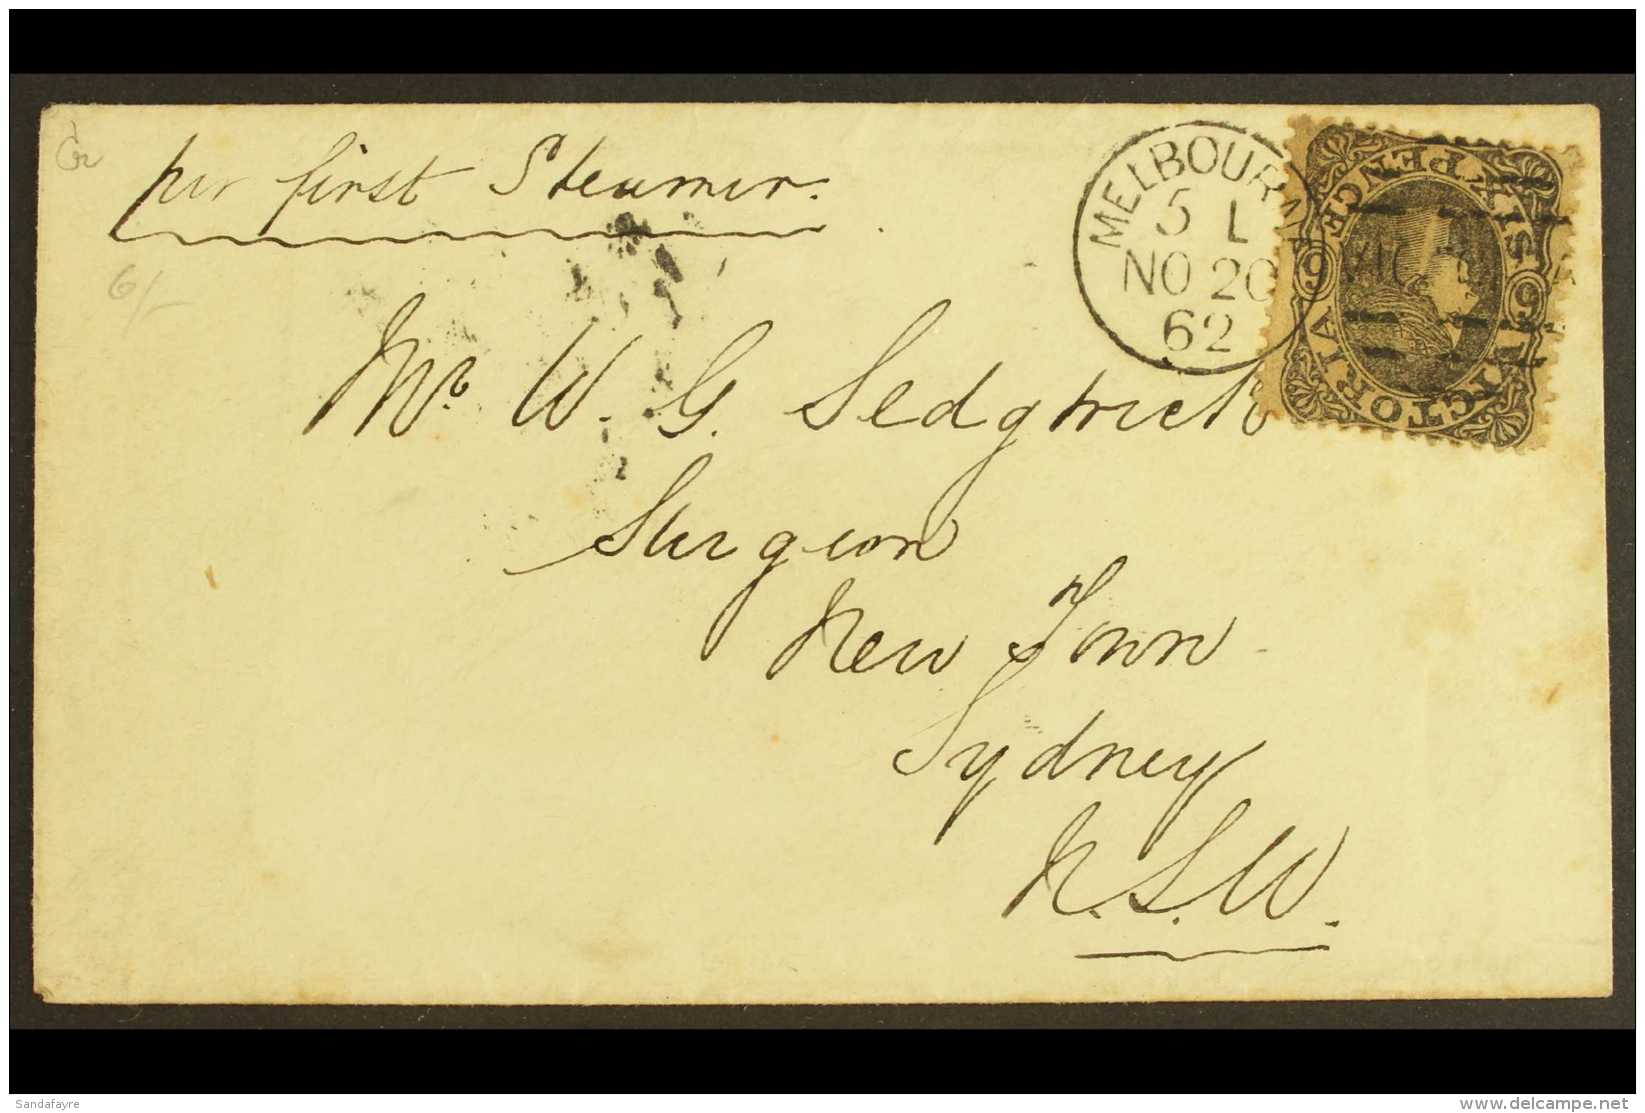 Gr
per first Steamer.
6/-
MELBOURNE
5 L
NO 20
62
VICTORIA
SIX PENCE
6 6
VICTORIA
Mr. W. G. Sedgwick
Surgeon
New Town
Sydney
N.S.W.
Sandafayre
www.delcampe.net